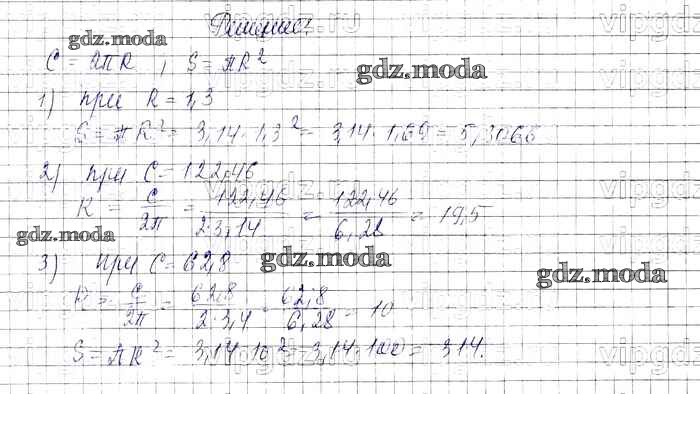 Решение:
gdz.moda
C = 2πR, S = πR²
gdz.moda
1) при R = 1,3
S = πR² = 3,14·1,3² = 3,14·1,69 = 5,3066
2) при C = 122,46
R = C/2π = 122,46/2·3,14 = 122,46/6,28 = 19,5
gdz.moda
3) при C = 62,8
gdz.moda
gdz.moda
R = C/2π = 62,8/2·3,4 = 62,8/6,28 = 10
S = πR² = 3,14·10² = 3,14·100 = 314.